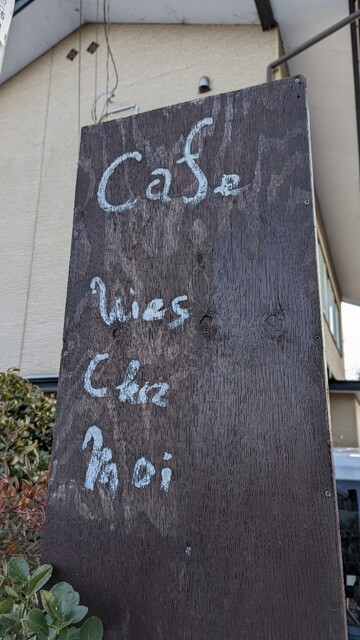 Cafe
Vies
Chez
Moi